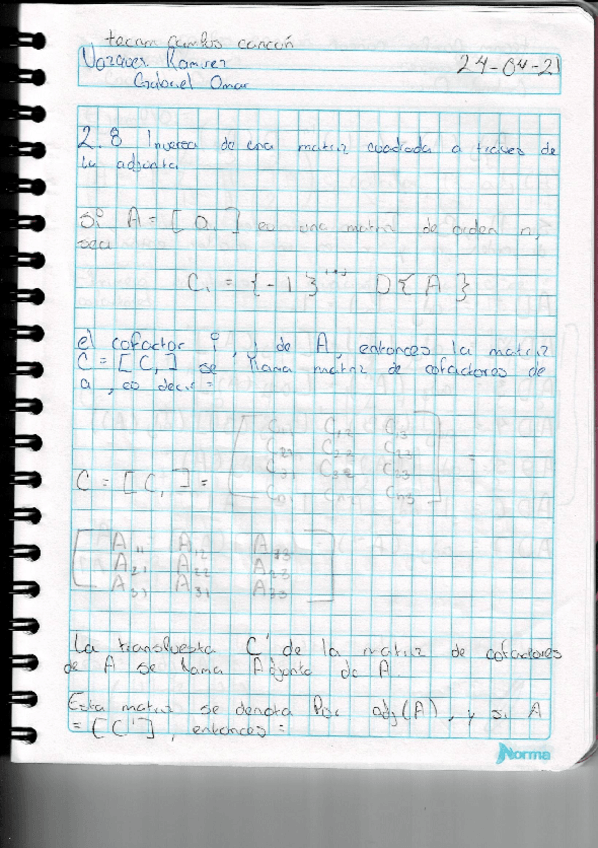 tecnm campus cancún
Vazquez Ramirez
Gabriel Omar
24-04-21
2.8 Inversa de una matriz cuadrada a traves de
la adjunta.
Si A = [ a, ] es una matriz de orden n,
sea
C, = {-1}ⁱ⁺ʲ D{A}
el cofactor i, j de A, entonces la matriz
C = [C,] se llama matriz de cofactores de
a, es decir =
C₁₁ C₁₂ C₁₃
C₂₁ C₂₂ C₂₃
C₃₁ C₃₂ C₃₃
C = [C,] =
Cn₂ Cn₃
=
A₁₁ A₁₂ A₁₃
A₂₁ A₂₂ A₂₃
A₃₁ A₃₁ A₃₃
La transpuesta C' de la matriz de cofactores
de A se llama Adjunta de A.
Esta matriz se denota Por adj(A), y si A
= [C'], entonces =
Norma